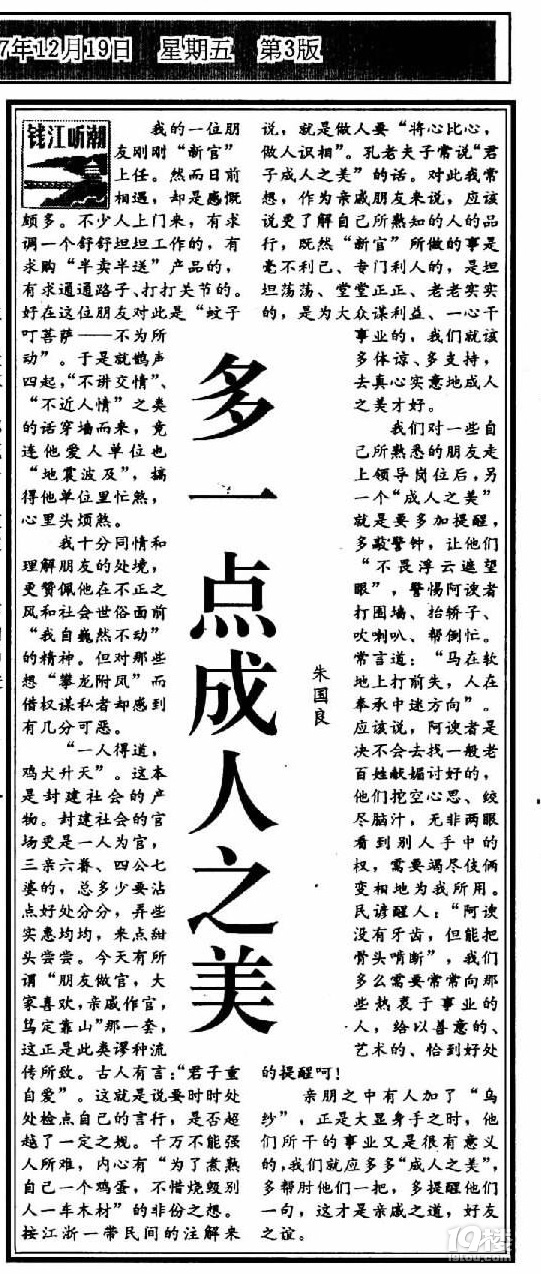 7年12月19日 星期五 第3版
钱江听潮
多一点成人之美
朱国良
我的一位朋
友刚刚“新官”
上任。然而日前
相遇,却是感慨
颇多。不少人上门来,有求
调一个舒舒坦坦工作的,有
求购“半卖半送”产品的,
有求通通路子、打打关节的。
好在这位朋友对此是“蚊子
叮菩萨——不为所
动”。于是就鹊声
四起,“不讲交情”、
“不近人情”之类
的话穿墙而来,竟
连他爱人单位也
“地震波及”,搞
得他单位里忙煞,
心里头烦煞。
我十分同情和
理解朋友的处境,
更赞佩他在不正之
风和社会世俗面前
“我自巍然不动”
的精神。但对那些
想“攀龙附凤”而
借权谋私者却感到
有几分可恶。
“一人得道,
鸡犬升天”。这本
是封建社会的产
物。封建社会的官
场更是一人为官,
三亲六眷、四公七
婆的,总多少要沾
点好处分分,弄些
实惠均均,来点甜
头尝尝。今天有所
谓“朋友做官,大
家喜欢,亲戚作官,
笃定靠山”那一套,
这正是此类谬种流
传所致。古人有言:“君子重
自爱”。这就是说要时时处
处检点自己的言行,是否超
越了一定之规。千万不能强
人所难,内心有“为了煮熟
自己一个鸡蛋,不惜烧毁别
人一车木材”的非份之想。
按江浙一带民间的注解来
说,就是做人要“将心比心,
做人识相”。孔老夫子常说“君
子成人之美”的话。对此我常
想,作为亲戚朋友来说,应该
说更了解自己所熟知的人的品
行,既然“新官”所做的事是
毫不利己、专门利人的,是坦
坦荡荡、堂堂正正、老老实实
的,是为大众谋利益、一心干
事业的,我们就该
多体谅、多支持,
去真心实意地成人
之美才好。
我们对一些自
己所熟悉的朋友走
上领导岗位后,另
一个“成人之美”
就是要多加提醒,
多敲警钟,让他们
“不畏浮云遮望
眼”,警惕阿谀者
打围墙、抬轿子、
吹喇叭、帮倒忙。
常言道:“马在软
地上打前失,人在
奉承中迷方向”。
应该说,阿谀者是
决不会去找一般老
百姓献媚讨好的,
他们挖空心思、绞
尽脑汁,无非两眼
看到别人手中的
权,需要竭尽伎俩
变相地为我所用。
民谚醒人:“阿谀
没有牙齿,但能把
骨头啃断”,我们
多么需要常常向那
些热衷于事业的
人,给以善意的、
艺术的、恰到好处
的提醒呵!
亲朋之中有人加了“乌
纱”,正是大显身手之时,他
们所干的事业又是很有意义
的,我们就应多多“成人之美”,
多帮肘他们一把,多提醒他们
一句,这才是亲戚之道,好友
之谊。
19楼
19lou.com